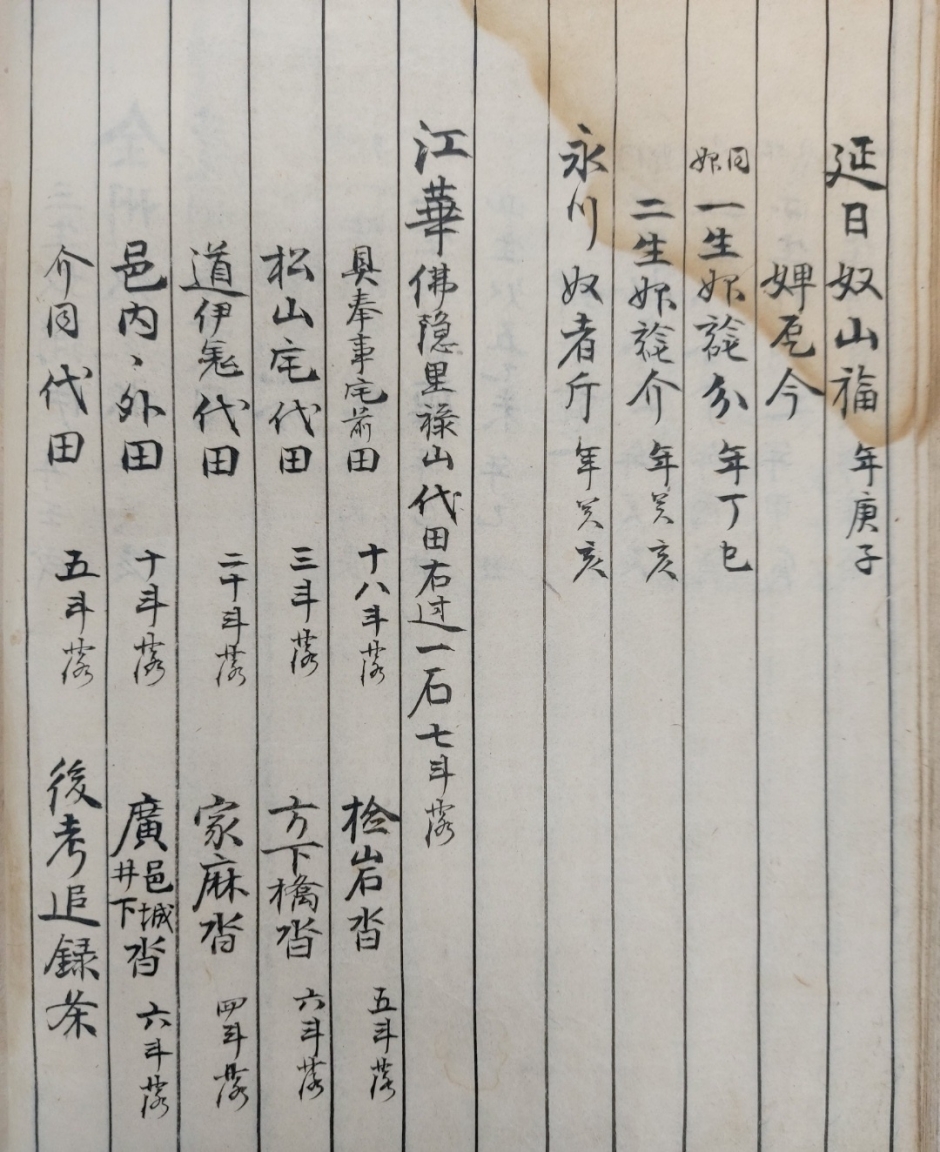 延日奴山福 年庚子
婢㖙今
同婢一生婢䜳分 年丁巳
二生婢䜳介 年癸亥
永川奴者斤 年癸亥
江華佛隐里祿山代田右过一石七斗落
具奉事宅前田 十八斗落 捡岩畓 五斗落
松山宅代田 三斗落 方下橋畓 六斗落
道伊 代田 二十斗落 家麻畓 四斗落
邑内、外田 十斗落 廣邑城井下畓 六斗落
介同代田 五斗落 後考追録茶